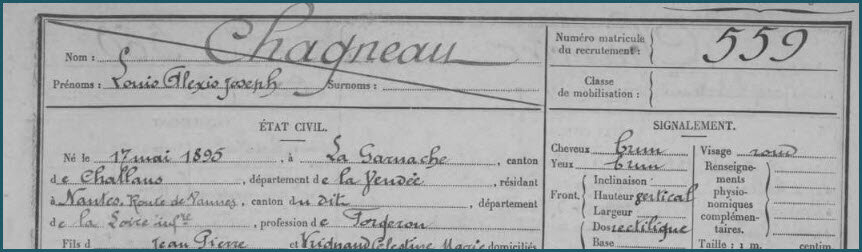 Nom : Chagneau
Prénoms : Louis Alexis Joseph Surnoms :
Numéro matricule du recrutement : 559
Classe de mobilisation :
ÉTAT CIVIL.
Né le 17 mai 1895, à La Garnache, canton
de Challans, département de la Vendée, résidant
à Nantes, Route de Vannes, canton du dit, département
de la Loire infre, profession de Forgeron
Fils d Jean Pierre et Vrignaud Célestine Marie domiciliés
SIGNALEMENT.
Cheveux brun Visage rond
Yeux brun
Front. Inclinaison
Hauteur vertical
Largeur
Dos rectiligne
Base
Renseignements physionomiques complémentaires :
Taille : 1 m. centim